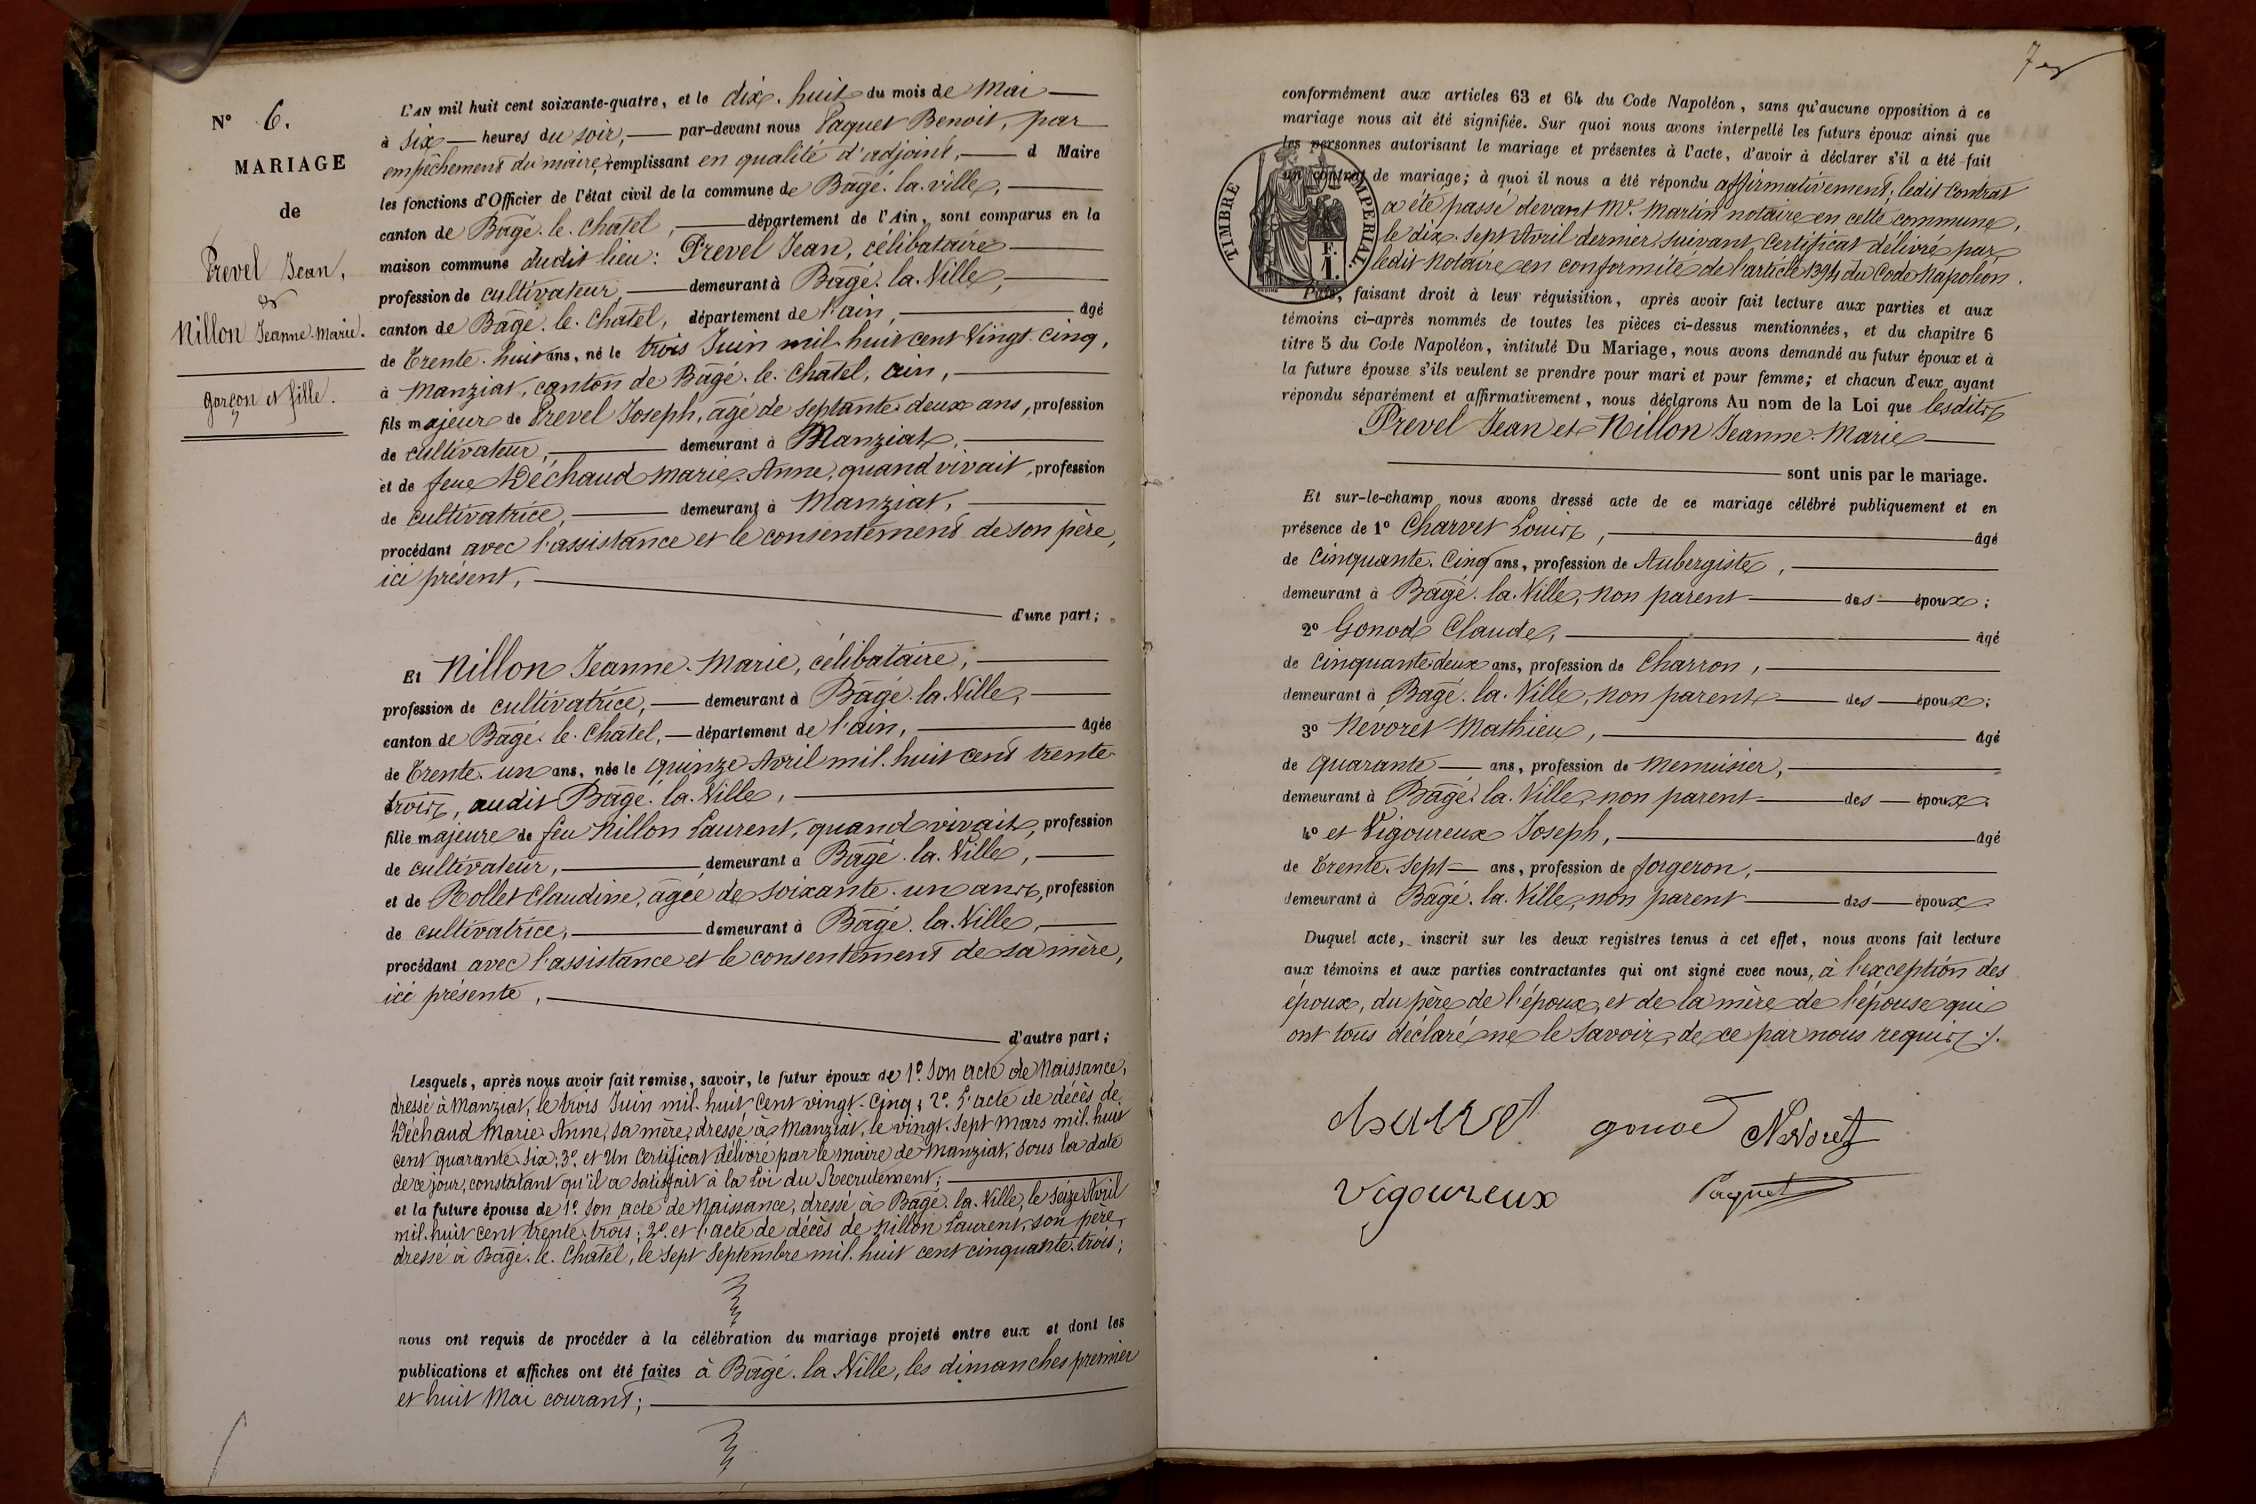 N° 6.
MARIAGE
de
Prevel Jean,
et
Nillon Jeanne-Marie.
garçon et fille.
L'AN mil huit cent soixante-quatre, et le dix-huit du mois de Mai
à Six heures du soir, par-devant nous Paquet Benoit, par
empêchement du maire, remplissant en qualité d'adjoint, d Maire
les fonctions d'Officier de l'état civil de la commune de Bâgé-la-ville,
canton de Bâgé-le-Châtel, département de l'Ain, sont comparus en la
maison commune dudit lieu: Prevel Jean, célibataire
profession de cultivateur, demeurant à Bâgé-la-Ville,
canton de Bâgé-le-Châtel, département de l'ain, âgé
de Trente-huit ans, né le trois Juin mil-huit cent Vingt-cinq,
à Manziat, canton de Bâgé-le-Châtel, ain,
fils majeur de Prevel Joseph, âgé de septante-deux ans, profession
de cultivateur, demeurant à Manziat,
et de feue Déchaud Marie-Anne, quand vivait, profession
de cultivatrice, demeurant à Manziat,
procédant avec l'assistance et le consentement de son père,
ici présent,
d'une part;
Et Nillon Jeanne-Marie, célibataire,
profession de cultivatrice, demeurant à Bâgé-la-Ville,
canton de Bâgé-le-Châtel, département de l'ain, âgée
de Trente-un ans, née le quinze Avril mil-huit cent trente-
trois, audit Bâgé-la-Ville,
fille majeure de feu Nillon Laurent, quand vivait, profession
de cultivateur, demeurant à Bâgé-la-Ville,
et de Rollet Claudine, âgée de soixante-un ans, profession
de cultivatrice, demeurant à Bâgé-la-Ville,
procédant avec l'assistance et le consentement de sa mère,
ici présente,
d'autre part;
Lesquels, après nous avoir fait remise, savoir, le futur époux de 1° Son acte de Naissance,
dressé à Manziat, le trois Juin mil-huit Cent vingt-Cinq; 2° L'acte de décès de
Déchaud Marie-Anne, sa mère, dressé à Manziat, le vingt-sept Mars mil-huit
cent quarante-six; 3° et Un Certificat délivré par le maire de Manziat, sous la date
de ce jour, constatant qu'il a satisfait à la Loi du Recrutement;
et la future épouse de 1° Son acte de Naissance, dressé à Bâgé-la-Ville, le seize Avril
mil-huit cent trente-trois; 2° et l'acte de décès de Nillon Laurent, son père,
dressé à Bâgé-le-Châtel, le sept Septembre mil-huit cent cinquante-trois;
nous ont requis de procéder à la célébration du mariage projeté entre eux et dont les
publications et affiches ont été faites à Bâgé-la-Ville, les dimanches premier
et huit Mai courant;
conformément aux articles 63 et 64 du Code Napoléon, sans qu'aucune opposition à ce
mariage nous ait été signifiée. Sur quoi nous avons interpellé les futurs époux ainsi que
les personnes autorisant le mariage et présentes à l'acte, d'avoir à déclarer s'il a été fait
un contrat de mariage; à quoi il nous a été répondu affirmativement; ledit contrat
a été passé devant Mr. Martin notaire en cette commune,
le dix-sept Avril dernier suivant Certificat délivré par
ledit Notaire en conformité de l'article 1394 du Code Napoléon.
TIMBRE IMPERIAL.
F.
1.
Puis, faisant droit à leur réquisition, après avoir fait lecture aux parties et aux
témoins ci-après nommés de toutes les pièces ci-dessus mentionnées, et du chapitre 6
titre 5 du Code Napoléon, intitulé Du Mariage, nous avons demandé au futur époux et à
la future épouse s'ils veulent se prendre pour mari et pour femme; et chacun d'eux ayant
répondu séparément et affirmativement, nous déclarons Au nom de la Loi que lesdits
Prevel Jean et Nillon Jeanne-Marie
sont unis par le mariage.
Et sur-le-champ nous avons dressé acte de ce mariage célébré publiquement et en
présence de 1° Charvet Louis, âgé
de Cinquante-Cinq ans, profession de Aubergiste,
demeurant à Bâgé-la-Ville, non parent des époux;
2° Gonod Claude, âgé
de Cinquante-deux ans, profession de Charron,
demeurant à Bâgé-la-Ville, non parent des époux;
3° Nevoret Mathieu, âgé
de quarante ans, profession de Menuisier,
demeurant à Bâgé-la-Ville, non parent des époux
4° et Vigoureux Joseph, âgé
de Trente-sept ans, profession de forgeron,
demeurant à Bâgé-la-Ville, non parent des époux
Duquel acte, inscrit sur les deux registres tenus à cet effet, nous avons fait lecture
aux témoins et aux parties contractantes qui ont signé avec nous, à l'exception des
époux, du père de l'époux, et de la mère de l'épouse qui
ont tous déclaré ne le savoir, de ce par nous requis ./.
Charvet gonod Nevoret
Vigoureux Paquet